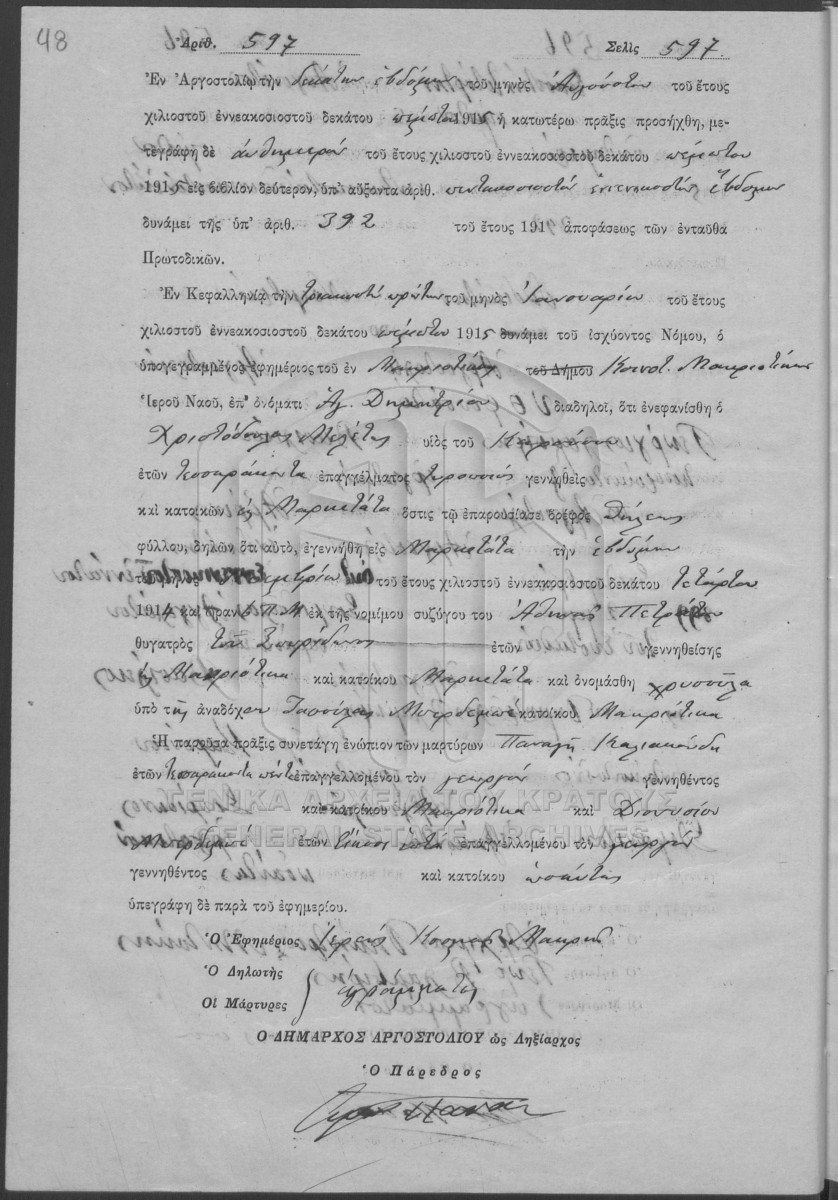 48
Ἀριθ. 597 Σελὶς 597.
Ἐν Ἀργοστολίῳ τὴν δεκάτην ἑβδόμην τοῦ μηνὸς Αὐγούστου τοῦ ἔτους
χιλιοστοῦ ἐννεακοσιοστοῦ δεκάτου πέμπτου 1915 ἡ κατωτέρω πρᾶξις προσήχθη, με-
τεγράφη δὲ αὐθημερὸν τοῦ ἔτους χιλιοστοῦ ἐννεακοσιοστοῦ δεκάτου πέμπτου
1915 εἰς βιβλίον δεύτερον, ὑπ' αὔξοντα ἀριθ. πεντακοσιοστὸν ἐνενηκοστὸν ἕβδομον
δυνάμει τῆς ὑπ' ἀριθ. 392 τοῦ ἔτους 1915 ἀποφάσεως τῶν ἐνταῦθα
Πρωτοδικῶν.
Ἐν Κεφαλληνίᾳ τὴν τριακοστὴν πρώτην τοῦ μηνὸς Ἰανουαρίου τοῦ ἔτους
χιλιοστοῦ ἐννεακοσιοστοῦ δεκάτου πέμπτου 1915 δυνάμει τοῦ ἰσχύοντος Νόμου, ὁ
ὑπογεγραμμένος ἐφημέριος τοῦ ἐν Μακριοτίκῃ τοῦ Δήμου Κοινοτ. Μακριοτίκων
Ἱεροῦ Ναοῦ, ἐπ' ὀνόματι Ἁγ. Δημητρίου διαδηλοῖ, ὅτι ἐνεφανίσθη ὁ
Χριστόδουλος Μελέτης υἱὸς τοῦ
ἐτῶν τεσσαράκοντα ἐπαγγέλματος γεννηθεὶς
καὶ κατοικῶν εἰς Μαρκετάτα ὅστις τῷ ἐπαρουσίασε βρέφος θήλεος
φύλλου, δηλῶν ὅτι αὐτό, ἐγεννήθη εἰς Μαρκετάτα τὴν ἑβδόμην
τοῦ μηνὸς τοῦ ἔτους χιλιοστοῦ ἐννεακοσιοστοῦ δεκάτου τετάρτου
1914 καὶ ὥραν 6 Π.Μ ἐκ τῆς νομίμου συζύγου του Ἀθηνᾶς
θυγατρὸς τοῦ Σπυρίδωνος ἐτῶν γεννηθείσης
εἰς Μακριότικα καὶ κατοίκου Μαρκετάτα καὶ ὀνομάσθη χρυσούλα
ὑπὸ τῆς ἀναδόχου Τασούλας κατοίκου Μακριότικα
Ἡ παροῦσα πρᾶξις συνετάγη ἐνώπιον τῶν μαρτύρων Παναγῆ
ἐτῶν τεσσαράκοντα πέντε ἐπαγγελλομένου τὸν γεωργὸν γεννηθέντος
καὶ κατοίκου Μακριότικα καὶ Διονυσίου
ἐτῶν εἴκοσι ἑπτὰ ἐπαγγελλομένου τὸν γεωργὸν
γεννηθέντος καὶ κατοίκου ὡσαύτως
ὑπεγράφη δὲ παρὰ τοῦ ἐφημερίου.
Ὁ Ἐφημέριος Ἱερεὺς Κοσμᾶς Μακρῆς
Ὁ Δηλωτὴς
ἀγράμματοι
Οἱ Μάρτυρες
Ο ΔΗΜΑΡΧΟΣ ΑΡΓΟΣΤΟΛΙΟΥ ὡς Ληξίαρχος
Ὁ Πάρεδρος
ΓΕΝΙΚΑ ΑΡΧΕΙΑ ΤΟΥ ΚΡΑΤΟΥΣ
GENERAL STATE ARCHIVES